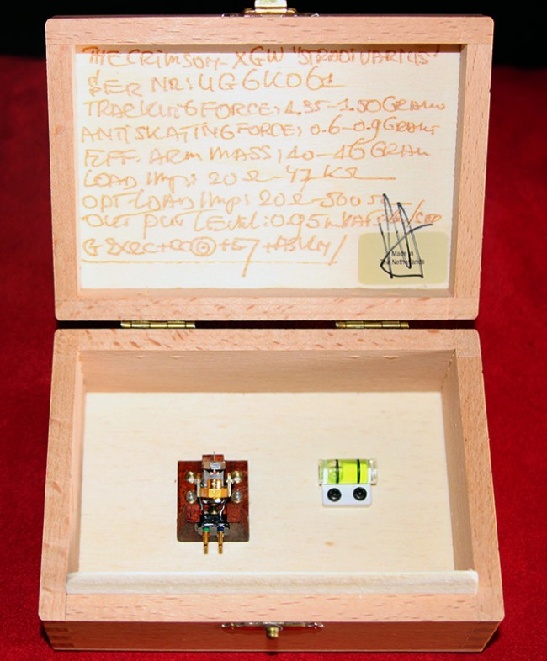 THE CRIMSON XGW "STRADIVARIUS"
SER NR: UG6K061
TRACKING FORCE: 1.35-1.50 GRAMS
ANTI SKATING FORCE: 0.6-0.9 GRAMS
EFF. ARM MASS: 10-16 GRAM
LOAD IMP: 20Ω-47KΩ
OPT LOAD IMP: 20Ω-500
OUTPUT LEVEL: 0.95m
Made in
The Netherlands